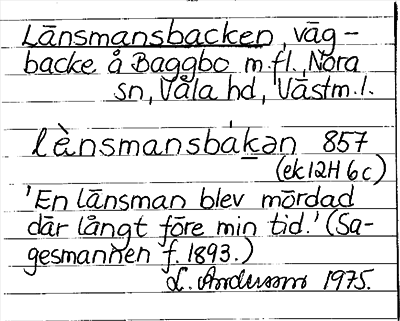 Länsmansbacken, väg-
backe å Baggbo m.fl., Nora
sn, Våla hd, Västm.l.
lènsmansbákan 857
(ek 12H 6c)
'En länsman blev mördad
där långt före min tid.' (Sa-
gesmannen f. 1893.)
L. Andersson 1975.